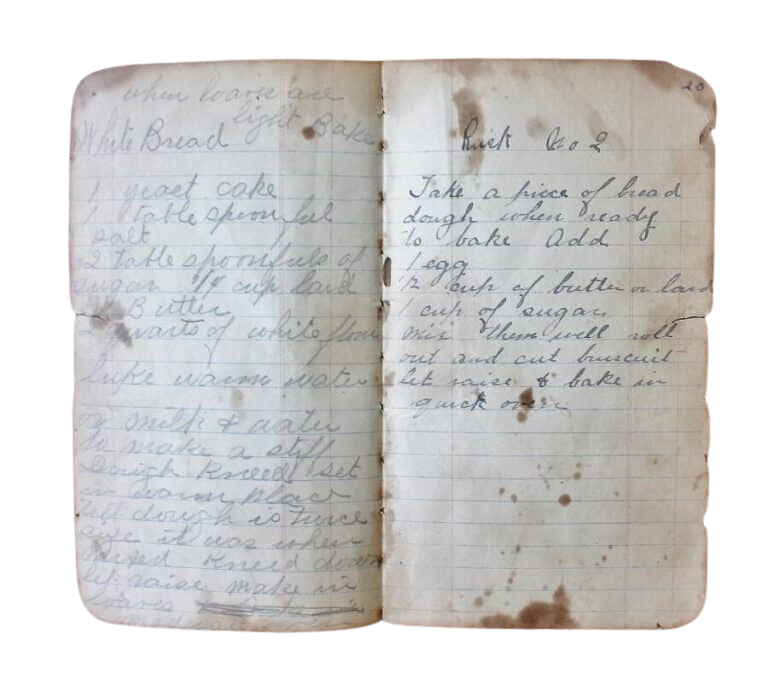 when loavs are
light Bake
White Bread
1 yeast cake
1 table spoonful
salt
2 table spoonfuls of
sugar 1/4 cup lard
or Butter
quarts of white flour
luke warm water
or milk & water
to make a stiff
Dough Kneed set
in warm place
till dough is twice
size it was when
Kneed down
let raise make in
loaves
20
Rusk No 2
Take a piece of bread
dough when ready
to bake Add
1 egg
1/2 cup of butter or lard
1 cup of sugar
mix them well roll
out and cut buscuit
let raise & bake in
quick oven